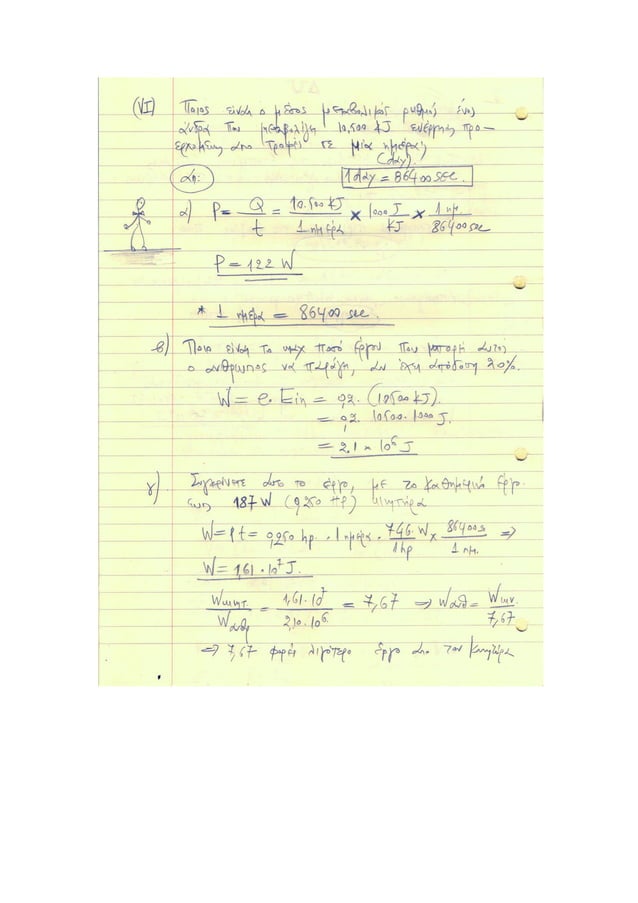 (VI) Ποιος είναι ο μέσος μεταβολικός ρυθμός ένας
άνδρα που μεταβολίζη 10.500 kJ ενέργειας προ-
ερχομένης απο τροφές σε μία ημέρα;
(day).
Λη: 1 day = 86400 sec.
α) P = Q/t = 10.500 kJ / 1 ημέρα × 1000 J / kJ × 1 ημ / 86400 sec
P = 122 W
* 1 ημέρα = 86400 sec.
β) Ποιο είναι το μαχ ποσό έργου που μπορεί αυτός
ο άνθρωπος να παράγη, αν έχη απόδοση 20%.
W = e. Ein = 0,2. (10500 kJ).
= 0,2. 10500. 1000 J.
= 2.1 × 10⁶ J
γ) Συγκρίνετε αυτο το έργο, με το καθημερινό έργο
ενος 187 W (0,250 Hp) κινητήρα
W = P t = 0,250 hp . 1 ημέρα . 746 W / 1 hp × 86400 s / 1 ημ. ⇒
W = 1,61 . 10⁷ J.
Wκινητ. / Wανθρ = 1,61 . 10⁷ / 2,10 . 10⁶ = 7,67 ⇒ Wανθ = Wκιν. / 7,67
⇒ 7,67 φορές λιγότερο έργο απο τον κινητήρα